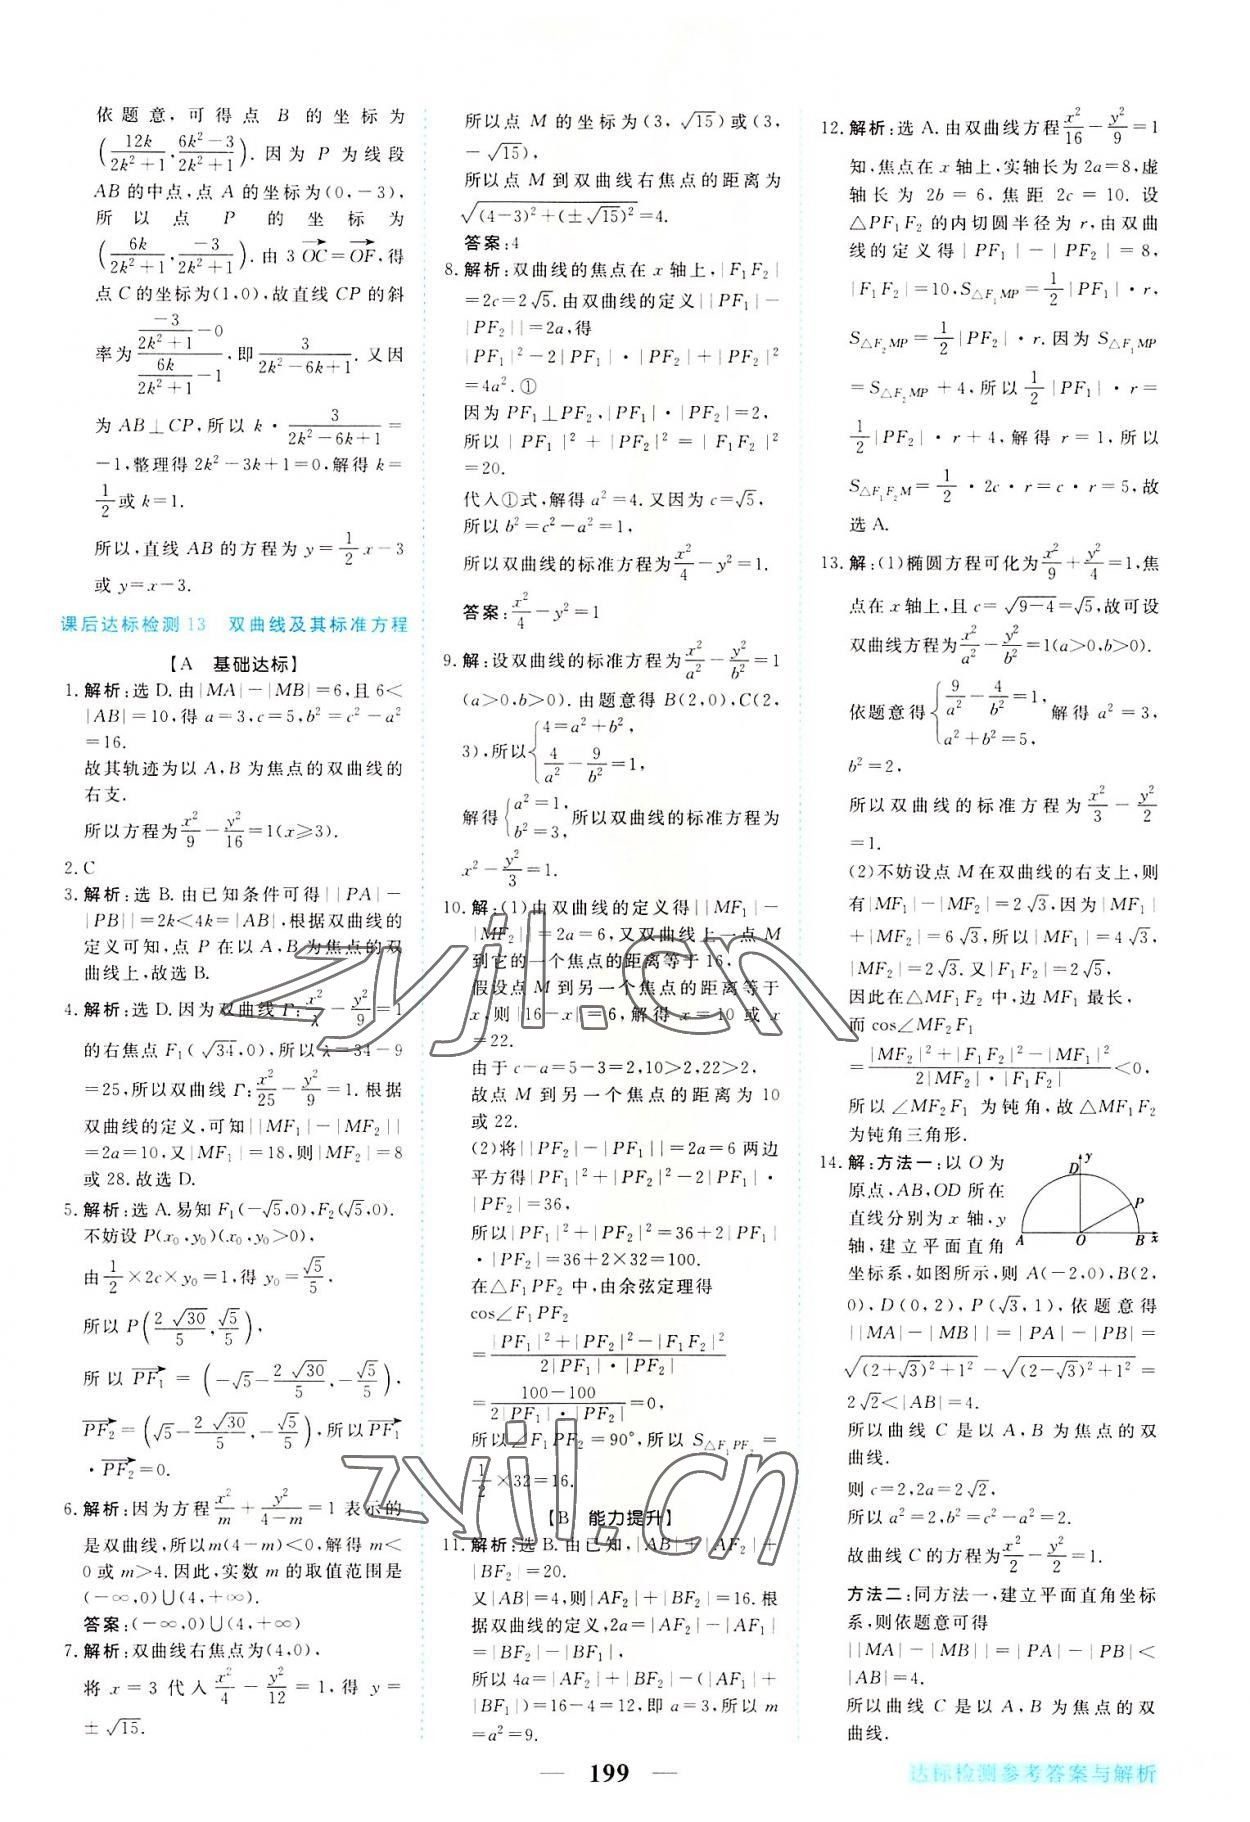 依题意,可得点 B 的坐标为
(12k/(2k²+1), (6k²-3)/(2k²+1)). 因为 P 为线段
AB 的中点,点 A 的坐标为(0,-3),
所以点 P 的坐标为
(6k/(2k²+1), -3/(2k²+1)). 由 3 \overrightarrow{OC}=\overrightarrow{OF},得
点 C 的坐标为(1,0),故直线 CP 的斜
率为 (-3/(2k²+1)-0)/(6k/(2k²+1)-1),即 3/(2k²-6k+1). 又因
为 AB⊥CP,所以 k·3/(2k²-6k+1)=
-1,整理得 2k²-3k+1=0,解得 k=
1/2 或 k=1.
所以,直线 AB 的方程为 y=1/2 x-3
或 y=x-3.
课后达标检测 13 双曲线及其标准方程
【A 基础达标】
1. 解析:选 D. 由|MA|-|MB|=6,且 6<
|AB|=10,得 a=3,c=5,b²=c²-a²
=16.
故其轨迹为以 A,B 为焦点的双曲线的
右支.
所以方程为 x²/9-y²/16=1(x≥3).
2. C
3. 解析:选 B. 由已知条件可得||PA|-
|PB||=2k<4k=|AB|,根据双曲线的
定义可知,点 P 在以 A,B 为焦点的双
曲线上,故选 B.
4. 解析:选 D. 因为双曲线 Γ:x²/λ-y²/9=1
的右焦点 F₁(√34,0),所以 λ=34-9
=25,所以双曲线 Γ:x²/25-y²/9=1. 根据
双曲线的定义,可知||MF₁|-|MF₂||
=2a=10,又|MF₁|=18,则|MF₂|=8
或 28. 故选 D.
5. 解析:选 A. 易知 F₁(-√5,0),F₂(√5,0).
不妨设 P(x₀,y₀)(x₀,y₀>0),
由 1/2×2c×y₀=1,得 y₀=√5/5,
所以 P(2√30/5, √5/5),
所以 \overrightarrow{PF₁}=(-√5-2√30/5, -√5/5),
\overrightarrow{PF₂}=(√5-2√30/5, -√5/5),所以 \overrightarrow{PF₁}
·\overrightarrow{PF₂}=0.
6. 解析:因为方程 x²/m+y²/(4-m)=1 表示的
是双曲线,所以m(4-m)<0,解得 m<
0 或 m>4. 因此,实数 m 的取值范围是
(-∞,0)∪(4,+∞).
答案:(-∞,0)∪(4,+∞)
7. 解析:双曲线右焦点为(4,0),
将 x=3 代入 x²/4-y²/12=1,得 y=
±√15.
所以点 M 的坐标为(3,√15)或(3,
-√15),
所以点 M 到双曲线右焦点的距离为
√((4-3)²+(±√15)²)=4.
答案:4
8. 解析:双曲线的焦点在 x 轴上,|F₁F₂|
=2c=2√5. 由双曲线的定义||PF₁|-
|PF₂||=2a,得
|PF₁|²-2|PF₁|·|PF₂|+|PF₂|²
=4a².①
因为 PF₁⊥PF₂,|PF₁|·|PF₂|=2,
所以|PF₁|²+|PF₂|²=|F₁F₂|²
=20.
代入①式,解得 a²=4. 又因为 c=√5,
所以 b²=c²-a²=1,
所以双曲线的标准方程为 x²/4-y²=1.
答案:x²/4-y²=1
9. 解:设双曲线的标准方程为 x²/a²-y²/b²=1
(a>0,b>0). 由题意得 B(2,0),C(2,
3),所以{4=a²+b², 4/a²-9/b²=1,
解得{a²=1, b²=3,所以双曲线的标准方程为
x²-y²/3=1.
10. 解:(1)由双曲线的定义得||MF₁|-
|MF₂||=2a=6,又双曲线上一点 M
到它的一个焦点的距离等于 16,
假设点 M 到另一个焦点的距离等于
x,则|16-x|=6,解得 x=10 或 x
=22.
由于 c-a=5-3=2,10>2,22>2,
故点 M 到另一个焦点的距离为 10
或 22.
(2)将||PF₂|-|PF₁||=2a=6 两边
平方得|PF₁|²+|PF₂|²-2|PF₁|·
|PF₂|=36,
所以|PF₁|²+|PF₂|²=36+2|PF₁|
·|PF₂|=36+2×32=100.
在△F₁PF₂ 中,由余弦定理得
cos∠F₁PF₂
=(|PF₁|²+|PF₂|²-|F₁F₂|²)/(2|PF₁|·|PF₂|)
=(100-100)/(2|PF₁|·|PF₂|)=0,
所以∠F₁PF₂=90°,所以 S△F₁PF₂=
1/2×32=16.
【B 能力提升】
11. 解析:选 B. 由已知,|AB|+|AF₂|+
|BF₂|=20.
又|AB|=4,则|AF₂|+|BF₂|=16. 根
据双曲线的定义,2a=|AF₂|-|AF₁|
=|BF₂|-|BF₁|,
所以 4a=|AF₂|+|BF₂|-(|AF₁|+
|BF₁|)=16-4=12,即 a=3,所以 m
=a²=9.
12. 解析:选 A. 由双曲线方程 x²/16-y²/9=1
知,焦点在 x 轴上,实轴长为 2a=8,虚
轴长为 2b=6,焦距 2c=10. 设
△PF₁F₂ 的内切圆半径为 r,由双曲
线的定义得|PF₁|-|PF₂|=8,
|F₁F₂|=10,S△F₁MP=1/2|PF₁|·r,
S△F₂MP=1/2|PF₂|·r. 因为 S△F₁MP
=S△F₂MP+4,所以 1/2|PF₁|·r=
1/2|PF₂|·r+4,解得 r=1,所以
S△F₁F₂M=1/2·2c·r=c·r=5,故
选 A.
13. 解:(1)椭圆方程可化为 x²/9+y²/4=1,焦
点在 x 轴上,且 c=√(9-4)=√5,故可设
双曲线方程为 x²/a²-y²/b²=1(a>0,b>0).
依题意得{9/a²-4/b²=1, a²+b²=5, 解得 a²=3,
b²=2,
所以双曲线的标准方程为 x²/3-y²/2
=1.
(2)不妨设点 M 在双曲线的右支上,则
有|MF₁|-|MF₂|=2√3,因为|MF₁|
+|MF₂|=6√3,所以|MF₁|=4√3,
|MF₂|=2√3. 又|F₁F₂|=2√5,
因此在△MF₁F₂ 中,边 MF₁ 最长,
而 cos∠MF₂F₁
=(|MF₂|²+|F₁F₂|²-|MF₁|²)/(2|MF₂|·|F₁F₂|)<0,
所以∠MF₂F₁ 为钝角,故△MF₁F₂
为钝角三角形.
14. 解:方法一:以 O 为
原点,AB,OD 所在
直线分别为 x 轴,y
轴,建立平面直角
坐标系,如图所示,则 A(-2,0),B(2,
0),D(0,2),P(√3,1),依题意得
||MA|-|MB||=|PA|-|PB|=
√((2+√3)²+1²)-√((2-√3)²+1²)=
2√2<|AB|=4.
所以曲线 C 是以 A,B 为焦点的双
曲线.
则 c=2,2a=2√2,
所以 a²=2,b²=c²-a²=2.
故曲线 C 的方程为 x²/2-y²/2=1.
方法二:同方法一,建立平面直角坐标
系,则依题意可得
||MA|-|MB||=|PA|-|PB|<
|AB|=4.
所以曲线 C 是以 A,B 为焦点的双
曲线.
D y
P
A O B x
zyjl.cn
zyjl.cn
— 199 —
达标检测参考答案与解析